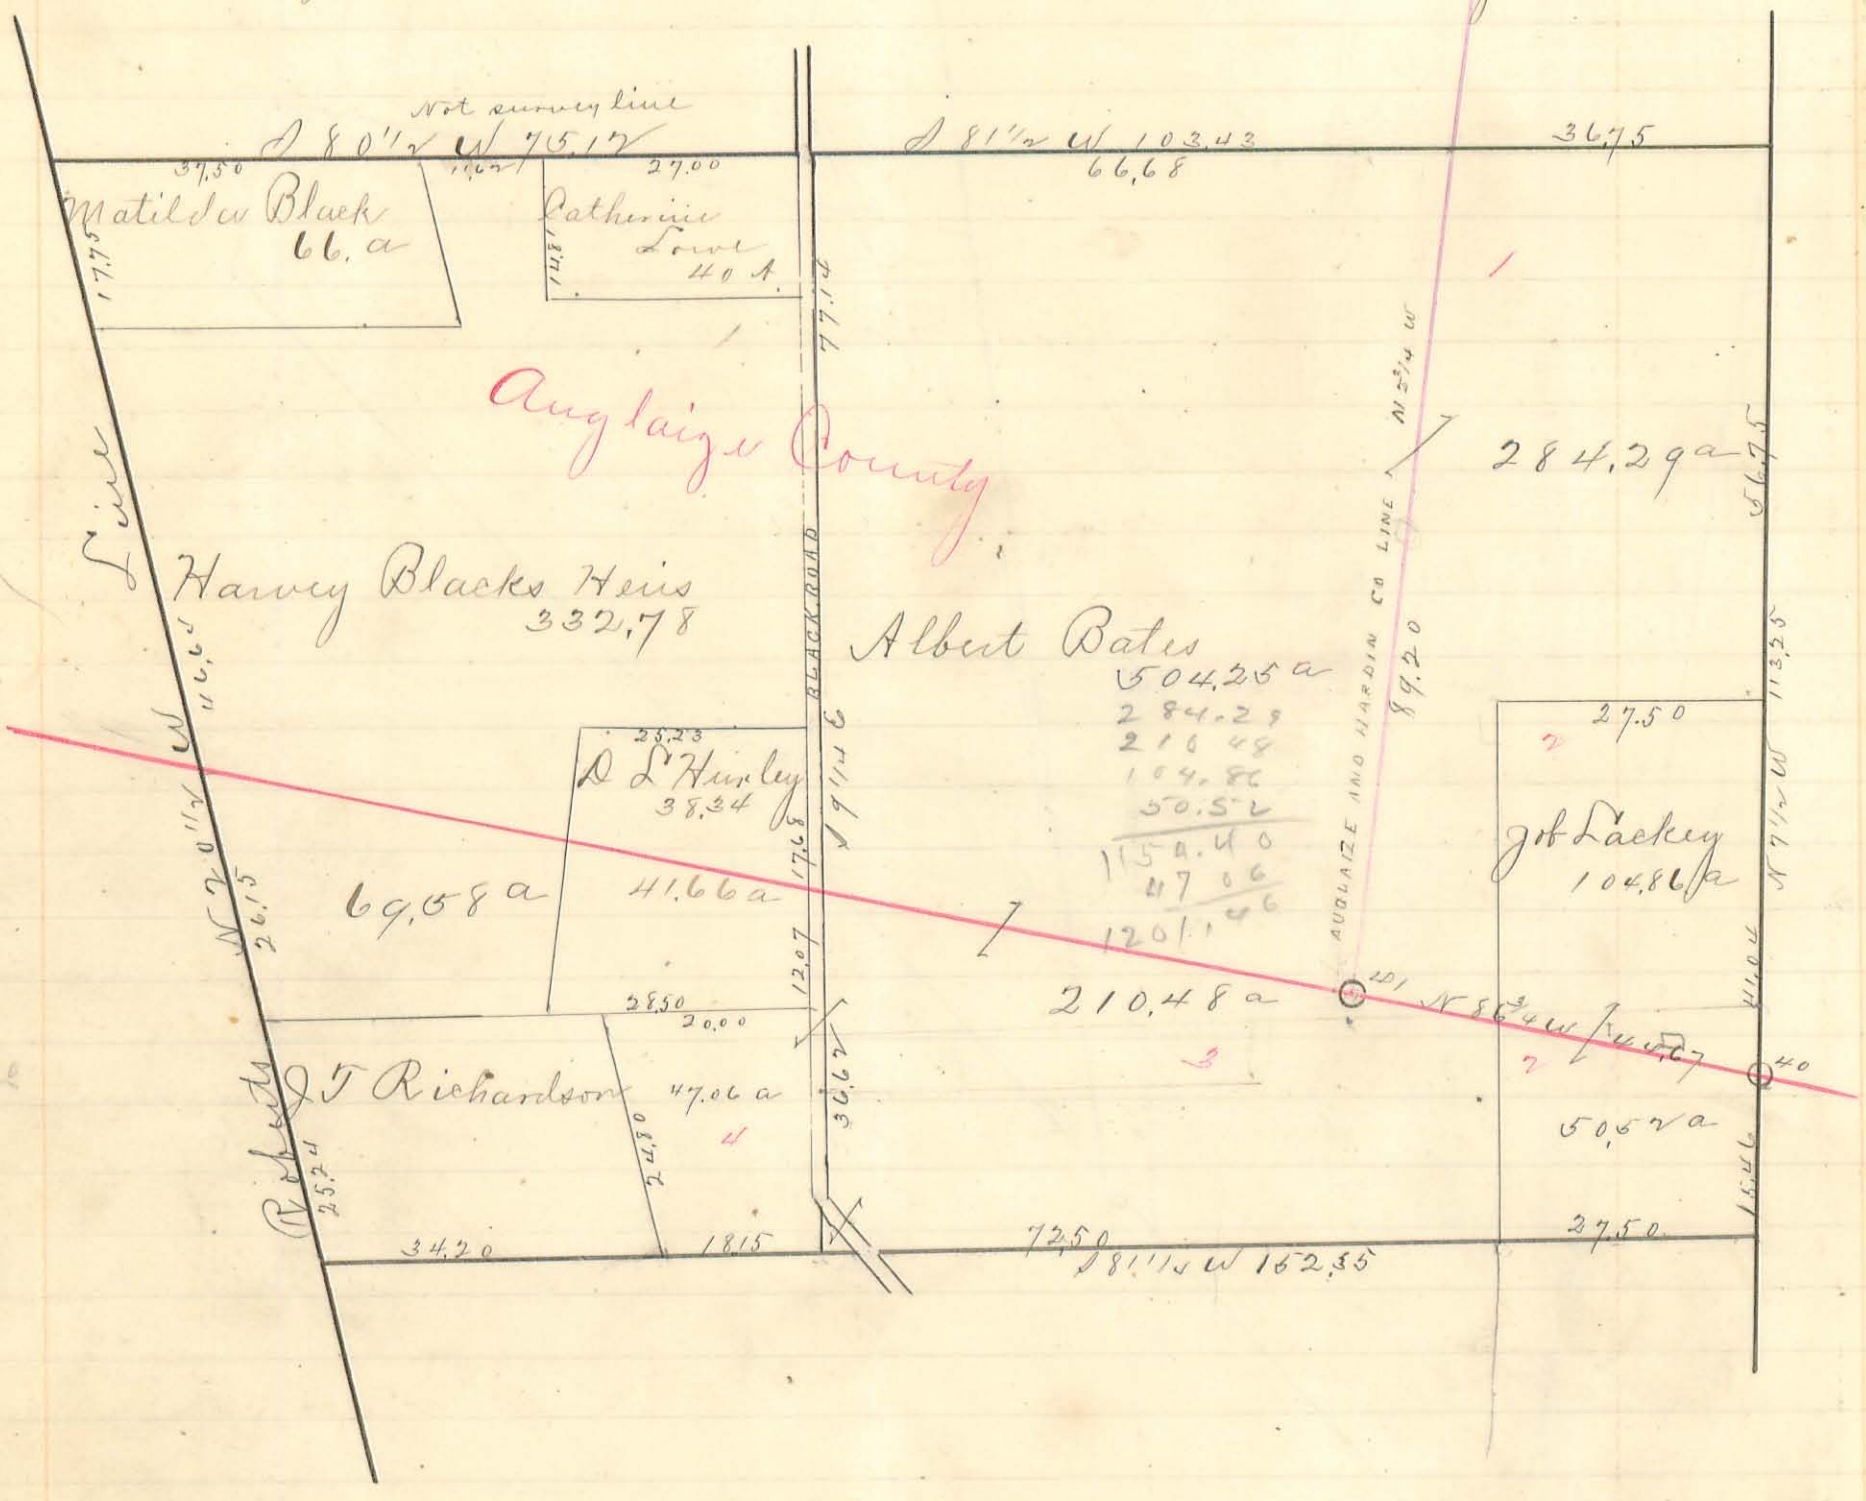 Not survey line
S 80 1/2 W 75.12
S 81 1/2 W 103.43
36.75
37.50
11.62
27.00
66.68
Matilda Black
66. a
17.75
Catherine
Lowe
40 A.
14.81
77.14
1
Auglaize County
N 5 3/4 W
284.29 a
56.75
Line
Harvey Blacks Heirs
332.78
BLACK ROAD
Albert Bates
504.25 a
284.29
210 48
104.86
50.52
1154.40
47 06
1201.46
AUGLAIZE AND HARDIN CO LINE
89.20
113.25
27.50
2
N 20 1/2 W
25.23
D L Hurley
38.34
17.68
S 9 1/4 E
Job Lackey
104.86 a
N 7 1/2 W
69.58 a
41.66 a
26.15
12.07
41.04
28.50
20.00
210.48 a
41
N 86 3/4 W
44.67
40
3
2
Roberts
J T Richardson
47.06 a
4
36.62
24.80
25.24
50.52 a
15.46
34.20
18.15
72.50
27.50
S 81 1/2 W 152.35